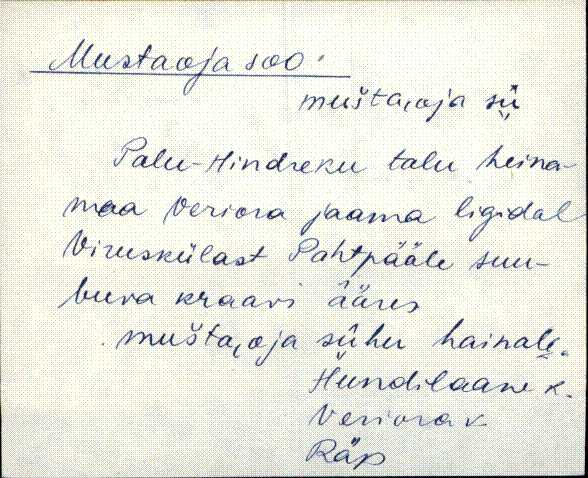 Mustaoja soo.
mušta,oja sü̬
Palu-Hindreku talu heina-
maa Veriora jaama ligidal
Viruskülast Pahtpääle suu-
buva kraavi ääres
mušta,oja sûhu hainale.
Hündilaane k.
Veriora v
Räp